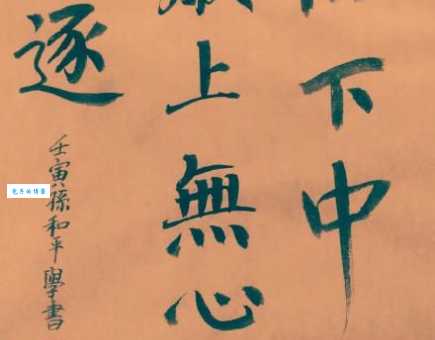 下中
上無心
逐
壬寅孫和平學書